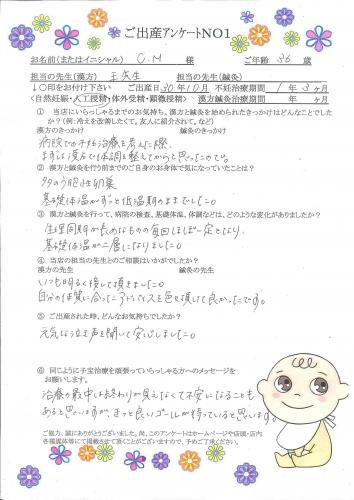 ご出産アンケートNO1
お名前(またはイニシャル) C.M 様 ご年齢 36 歳
担当の先生(漢方) 王先生 担当の先生(鍼灸)
↓〇印をお付け下さい ご出産日 30年10月 不妊治療期間 1年3ヶ月
<自然妊娠・人工授精・体外受精・顕微授精> 漢方鍼灸治療期間 年 ヶ月
① 当店にいらっしゃるまでのお気持ち、漢方と鍼灸を始められたきっかけはどんなことでした
か?(例:冷えを改善したくて。友人に紹介されて、など)
漢方のきっかけ 鍼灸のきっかけ
病院での不妊治療を考えた際、
まずは漢方で体調を整えてからと思ったので。
② 漢方と鍼灸を行う前までのご自身のお身体で気になっていたことは?
多のう胞性卵巣
基礎体温がずっと低温期のままでした。
③ 漢方と鍼灸を行って、病院の検査、基礎体温、体調などは、どのような変化がありましたか?
生理周期が長めなものの毎回ほぼ一定となり、
基礎体温が二層になりました。
④ 当店の担当の先生とのご相談はいかがでしたか?
漢方の先生 鍼灸の先生
いつも明るく接して頂きました。
自分の体質に合ったアドバイスを色々頂けて良かったです。
⑤ ご出産された時、どんなお気持ちでしたか?
元気な泣き声を聞いて安心しました。
⑥ 同じように子宝治療を頑張っていらっしゃる方へのメッセージを
お願いします。
治療の最中は終わりが見えなくて不安になることも
あると思いますが、きっと良いゴールが待っていると思います。
ご協力、誠にありがとうございました。尚、このアンケートはホームページや店頭・店内・
各種媒体等にて掲載させて頂くことがございますので、予めご了承ください。